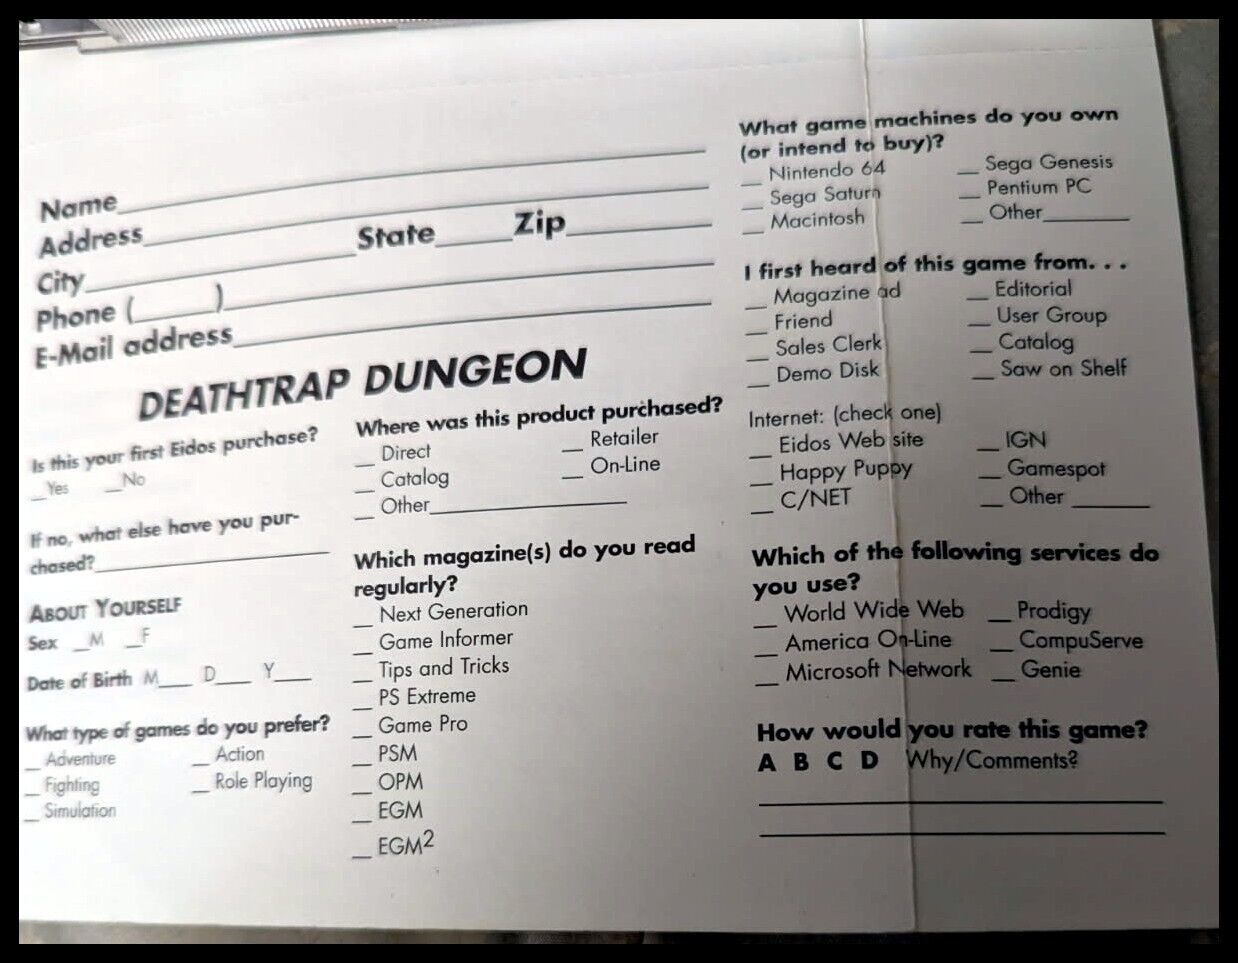 Name
Address
City State Zip
Phone ( )
E-Mail address
DEATHTRAP DUNGEON
Is this your first Eidos purchase?
__Yes __No
If no, what else have you pur-
chased?
ABOUT YOURSELF
Sex __M __F
Date of Birth M___ D___ Y___
What type of games do you prefer?
__ Adventure __ Action
__ Fighting __ Role Playing
__ Simulation
Where was this product purchased?
__ Direct __ Retailer
__ Catalog __ On-Line
__ Other
Which magazine(s) do you read
regularly?
__ Next Generation
__ Game Informer
__ Tips and Tricks
__ PS Extreme
__ Game Pro
__ PSM
__ OPM
__ EGM
__ EGM2
What game machines do you own
(or intend to buy)?
__ Nintendo 64 __ Sega Genesis
__ Sega Saturn __ Pentium PC
__ Macintosh __ Other
I first heard of this game from. . .
__ Magazine ad __ Editorial
__ Friend __ User Group
__ Sales Clerk __ Catalog
__ Demo Disk __ Saw on Shelf
Internet: (check one)
__ Eidos Web site __ IGN
__ Happy Puppy __ Gamespot
__ C/NET __ Other
Which of the following services do
you use?
__ World Wide Web __ Prodigy
__ America On-Line __ CompuServe
__ Microsoft Network __ Genie
How would you rate this game?
A B C D Why/Comments?